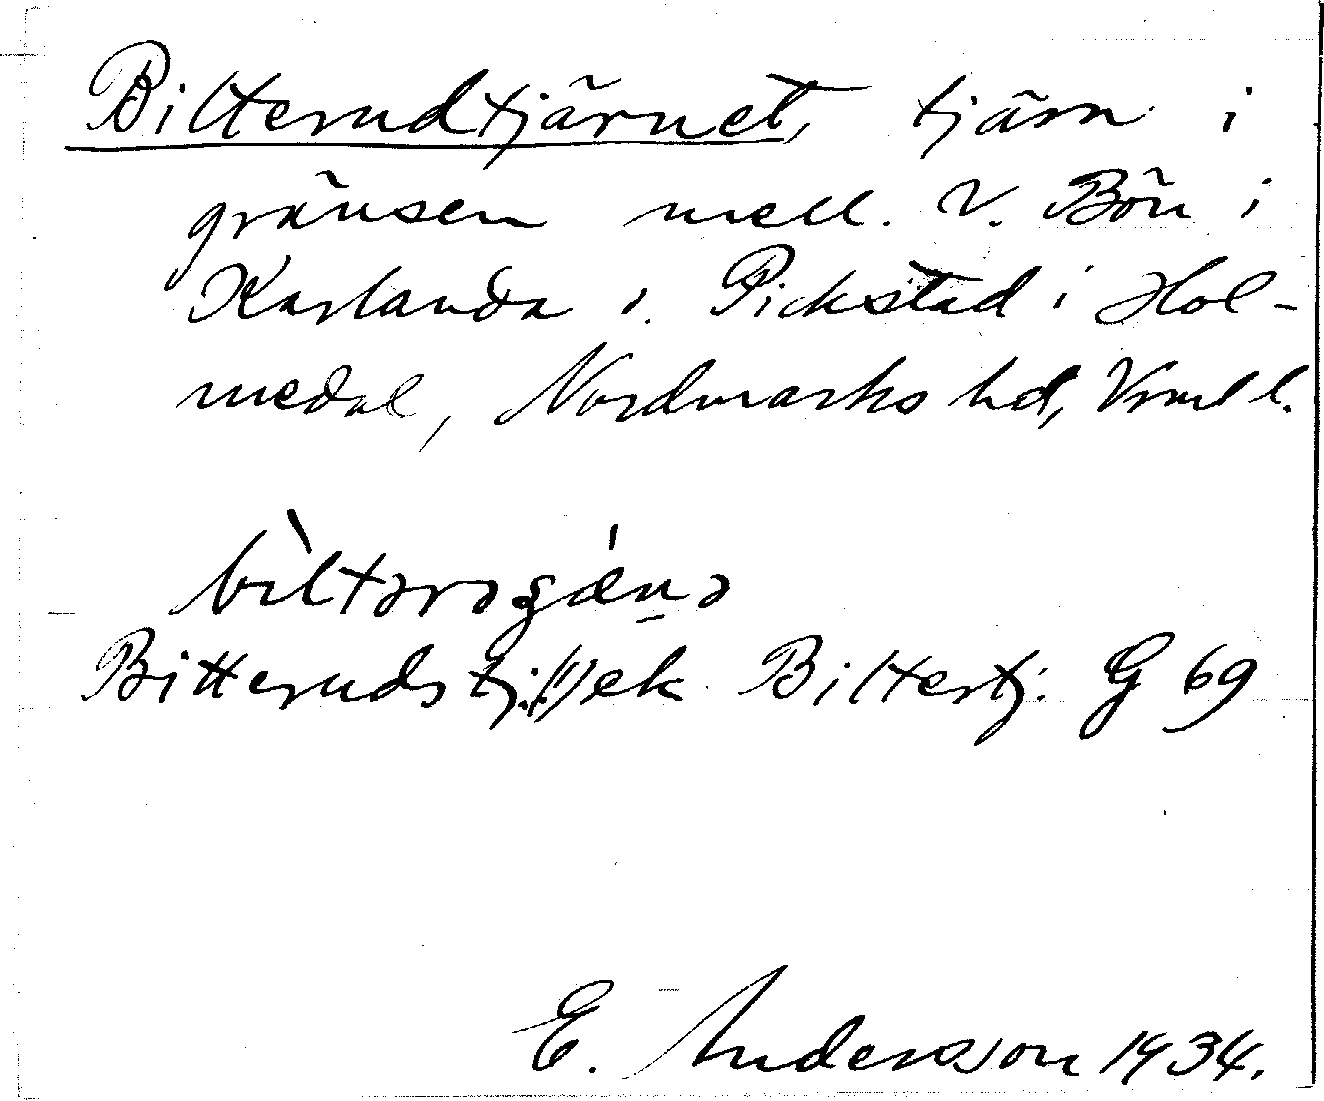 Bilterudtjärnet, tjärn i
gränsen mell. V. Bön i
Karlanda o. Pickstad i Hol-
medal, Nordmarks hd, Vrml l.
bìltərəʂǽn̠ə
Bitterudstj.(!) ek. Biltertj. G 69
E. Andersson 1934.